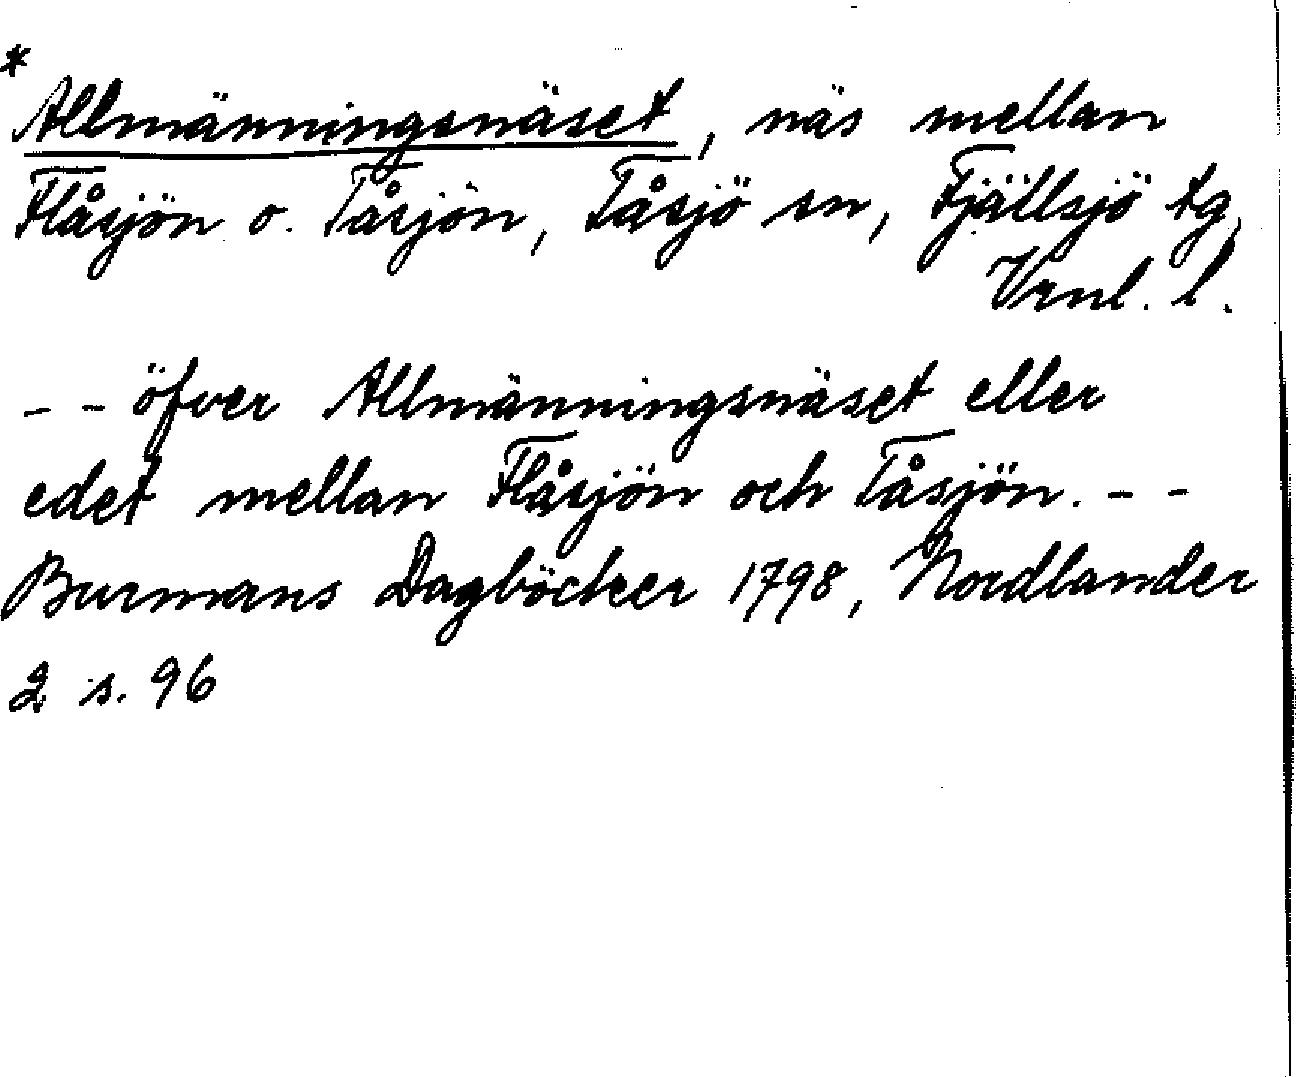 *
Allmänningsnäset, näs mellan
Flåsjön o. Tåsjön, Tåsjö sn, Fjällsjö tg,
Vrnl. l.
- - öfver Allmänningsnäset eller
edet mellan Flåsjön och Tåsjön. - -
Burmans Dagböcker 1798, Nordlander
2 s. 96